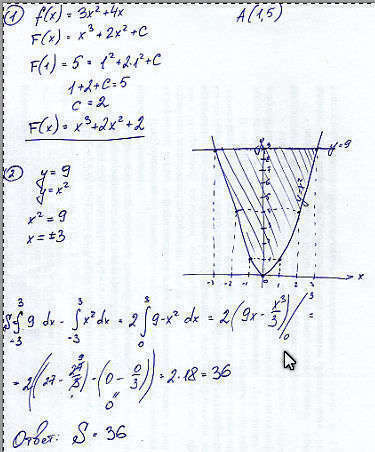 ① f(x) = 3x²+4x A(1,5)
F(x) = x³+2x²+C
F(1) = 5 = 1²+2·1²+C
1+2+C=5
C=2
F(x) = x³+2x²+2
② y=9
y=x²
x²=9
x=±3
y=9
y=x²
-3 -2 -1 0 1 2 3 x
S=∫₋₃³ 9 dx - ∫₋₃³ x²dx = 2∫₀³ 9-x² dx = 2(9x - x³/3)|₀³ =
= 2((27 - 27/3) - (0 - 0/3)) = 2·18 = 36
9
0
Ответ: S = 36